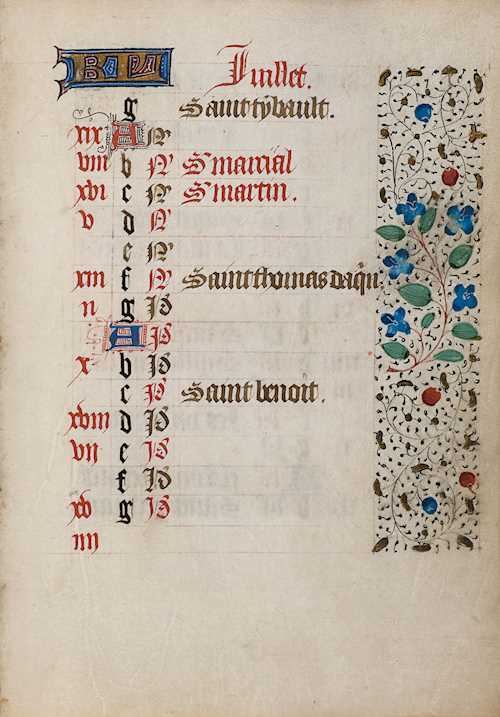 Juillet.
g Saint tybault.
xix A N
viii b N S marcial
xvi c N S martin.
v d N
e N
xiii f N Saint thomas daqu
ii g Id
A Id
x b Id
c Id Saint benoit.
xviii d Id
vii e Id
f Id
xv g Id
iiii